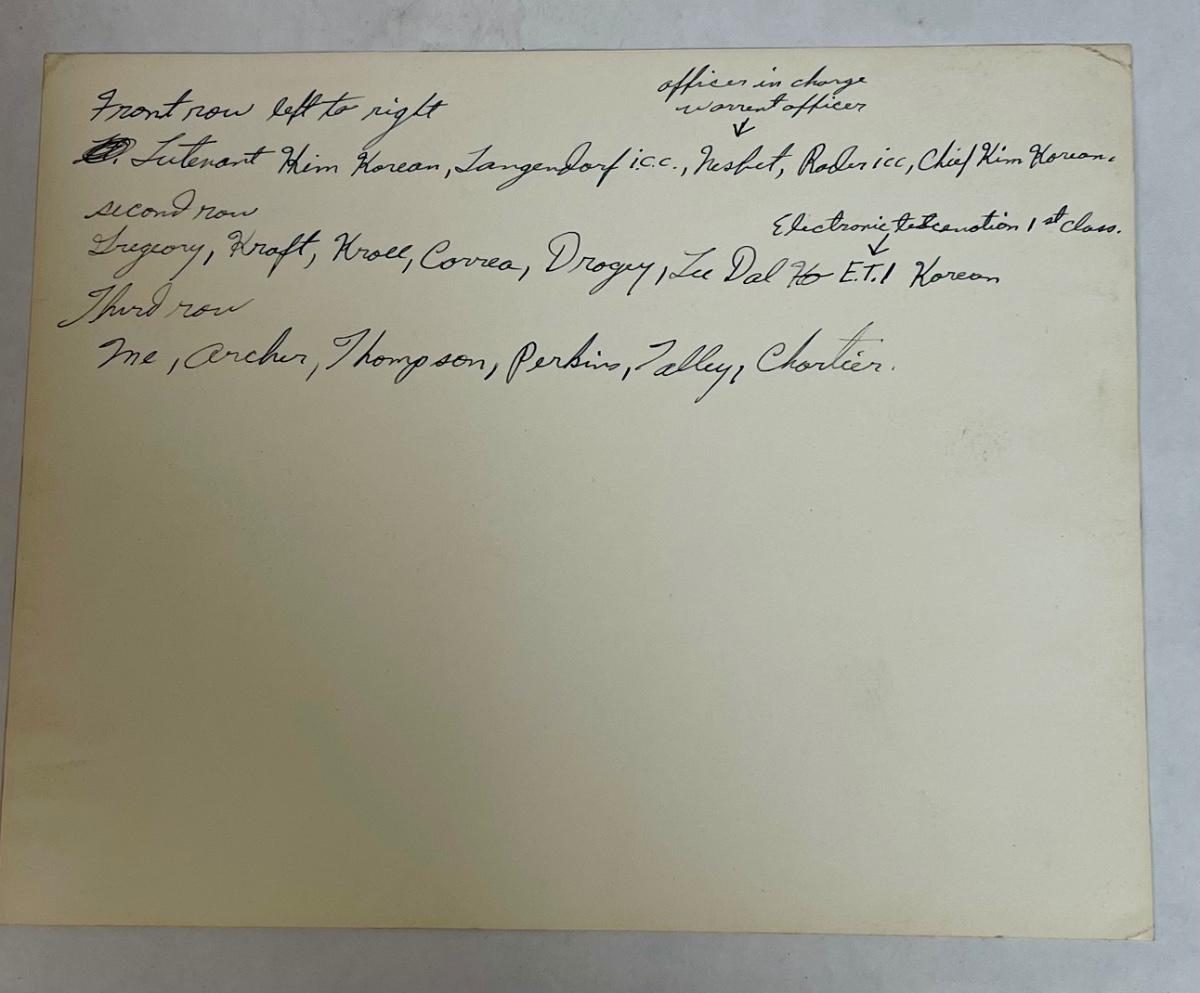 officer in charge
warrent officer
Front row left to right
Lutenant Kim Korean, Langendorf i.c.c., Nesbet, Rader icc, Chief Kim Korean.
second row
Electronic 1st class.
Gregeory, Kraft, Kroll, Correa, Drogey, Lee Dal Ho E.T.1 Korean
Third row
Me, Archer, Thompson, Perkins, Talley, Chartier.